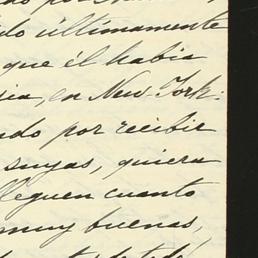 do últimamente
que él habia
en New-York:
do por recibir
suyas, quiera
lleguen cuanto
muy buenas,